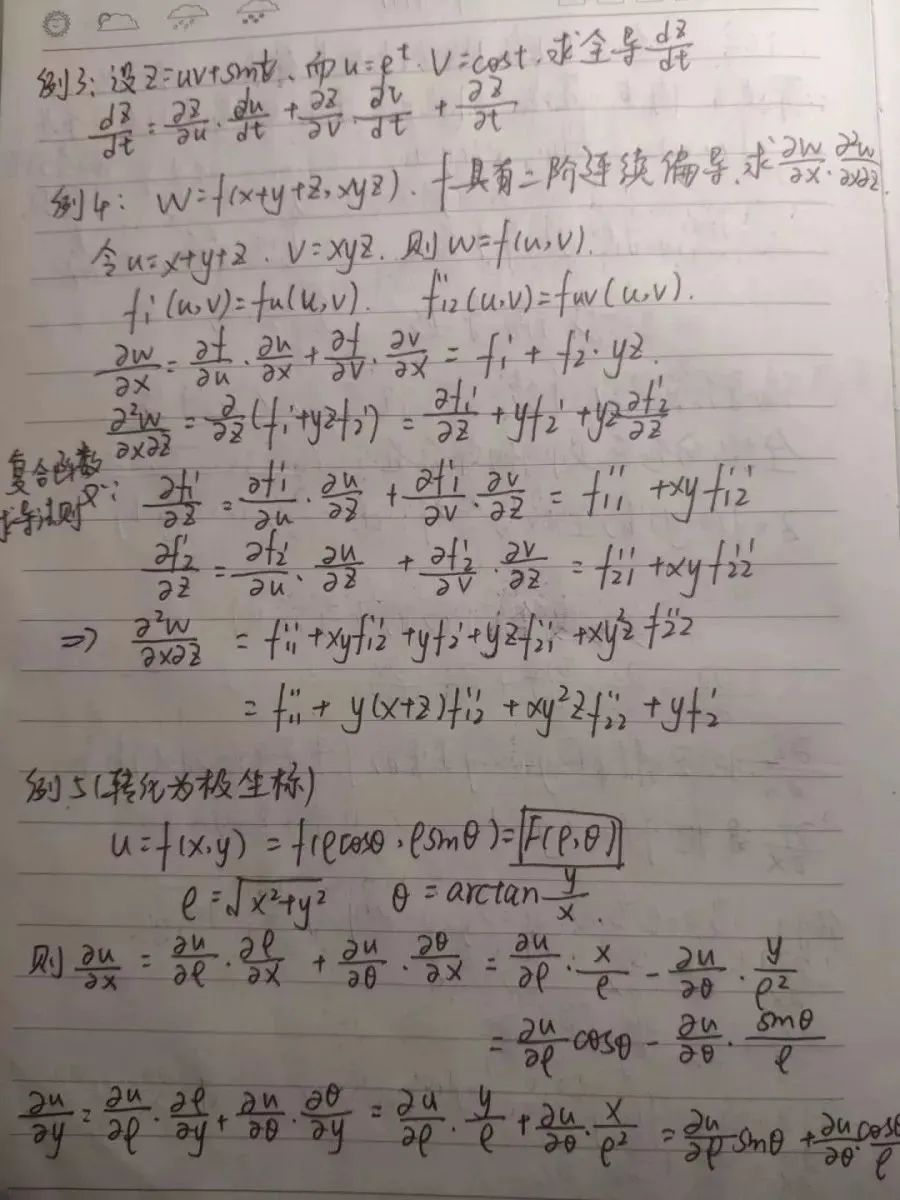 例3: 设z=uv+sint, 而u=e^t, v=cost, 求全导 dz/dt
dz/dt = ∂z/∂u · du/dt + ∂z/∂v · dv/dt + ∂z/∂t
例4: w=f(x+y+z, xyz). f具有二阶连续偏导, 求 ∂w/∂x · ∂²w/∂x∂z.
令u=x+y+z. v=xyz. 则w=f(u,v).
f₁'(u,v)=fu(u,v). f₁₂''(u,v)=fuv(u,v).
∂w/∂x = ∂f/∂u · ∂u/∂x + ∂f/∂v · ∂v/∂x = f₁' + f₂' · yz.
∂²w/∂x∂z = ∂/∂z (f₁'+yzf₂') = ∂f₁'/∂z + yf₂' + yz ∂f₂'/∂z
复合函数
求导法则: ∂f₁'/∂z = ∂f₁'/∂u · ∂u/∂z + ∂f₁'/∂v · ∂v/∂z = f₁₁'' + xyf₁₂''
∂f₂'/∂z = ∂f₂'/∂u · ∂u/∂z + ∂f₂'/∂v · ∂v/∂z = f₂₁'' + xyf₂₂''
⇒ ∂²w/∂x∂z = f₁₁'' + xyf₁₂'' + yf₂' + yzf₂₁'' + xy²z f₂₂''
= f₁₁'' + y(x+z)f₁₂'' + xy²zf₂₂'' + yf₂'
例5(转化为极坐标)
u=f(x,y) = f(ρcosθ, ρsinθ) = F(ρ,θ)
ρ=√(x²+y²) θ=arctan y/x.
则 ∂u/∂x = ∂u/∂ρ · ∂ρ/∂x + ∂u/∂θ · ∂θ/∂x = ∂u/∂ρ · x/ρ - ∂u/∂θ · y/ρ²
= ∂u/∂ρ cosθ - ∂u/∂θ · sinθ/ρ
∂u/∂y = ∂u/∂ρ · ∂ρ/∂y + ∂u/∂θ · ∂θ/∂y = ∂u/∂ρ · y/ρ + ∂u/∂θ · x/ρ² = ∂u/∂ρ sinθ + ∂u/∂θ · cosθ/ρ